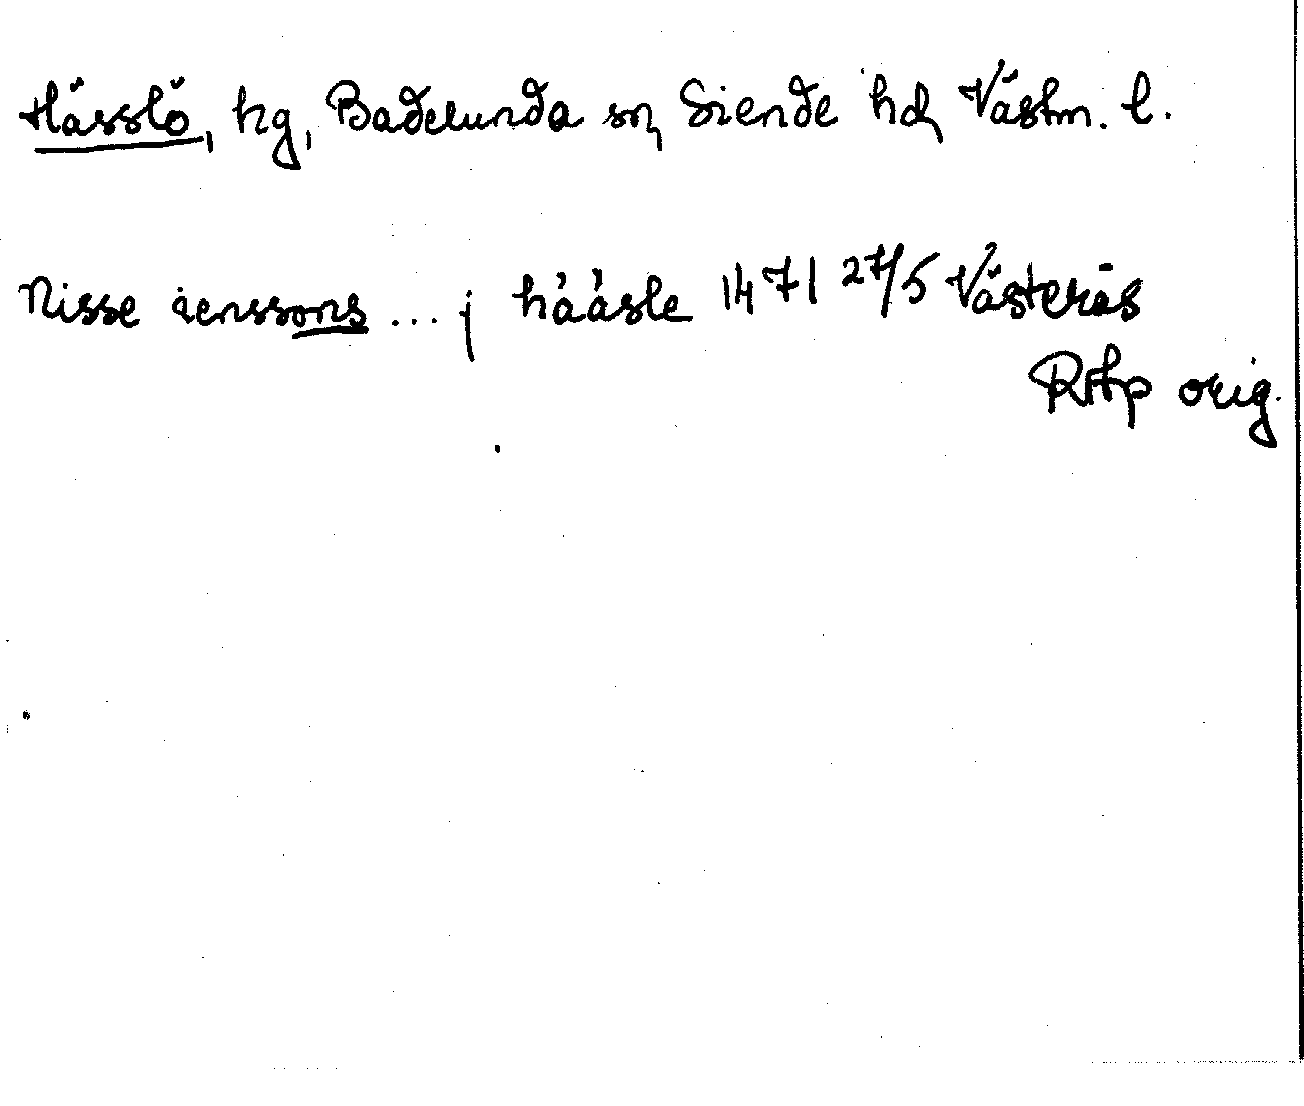 Hässlö, hg, Badelunda sn, Siende hd, Västm. l.
Nisse ienssons ... j hååsle 1471 27/5 Västerås
RAp orig.